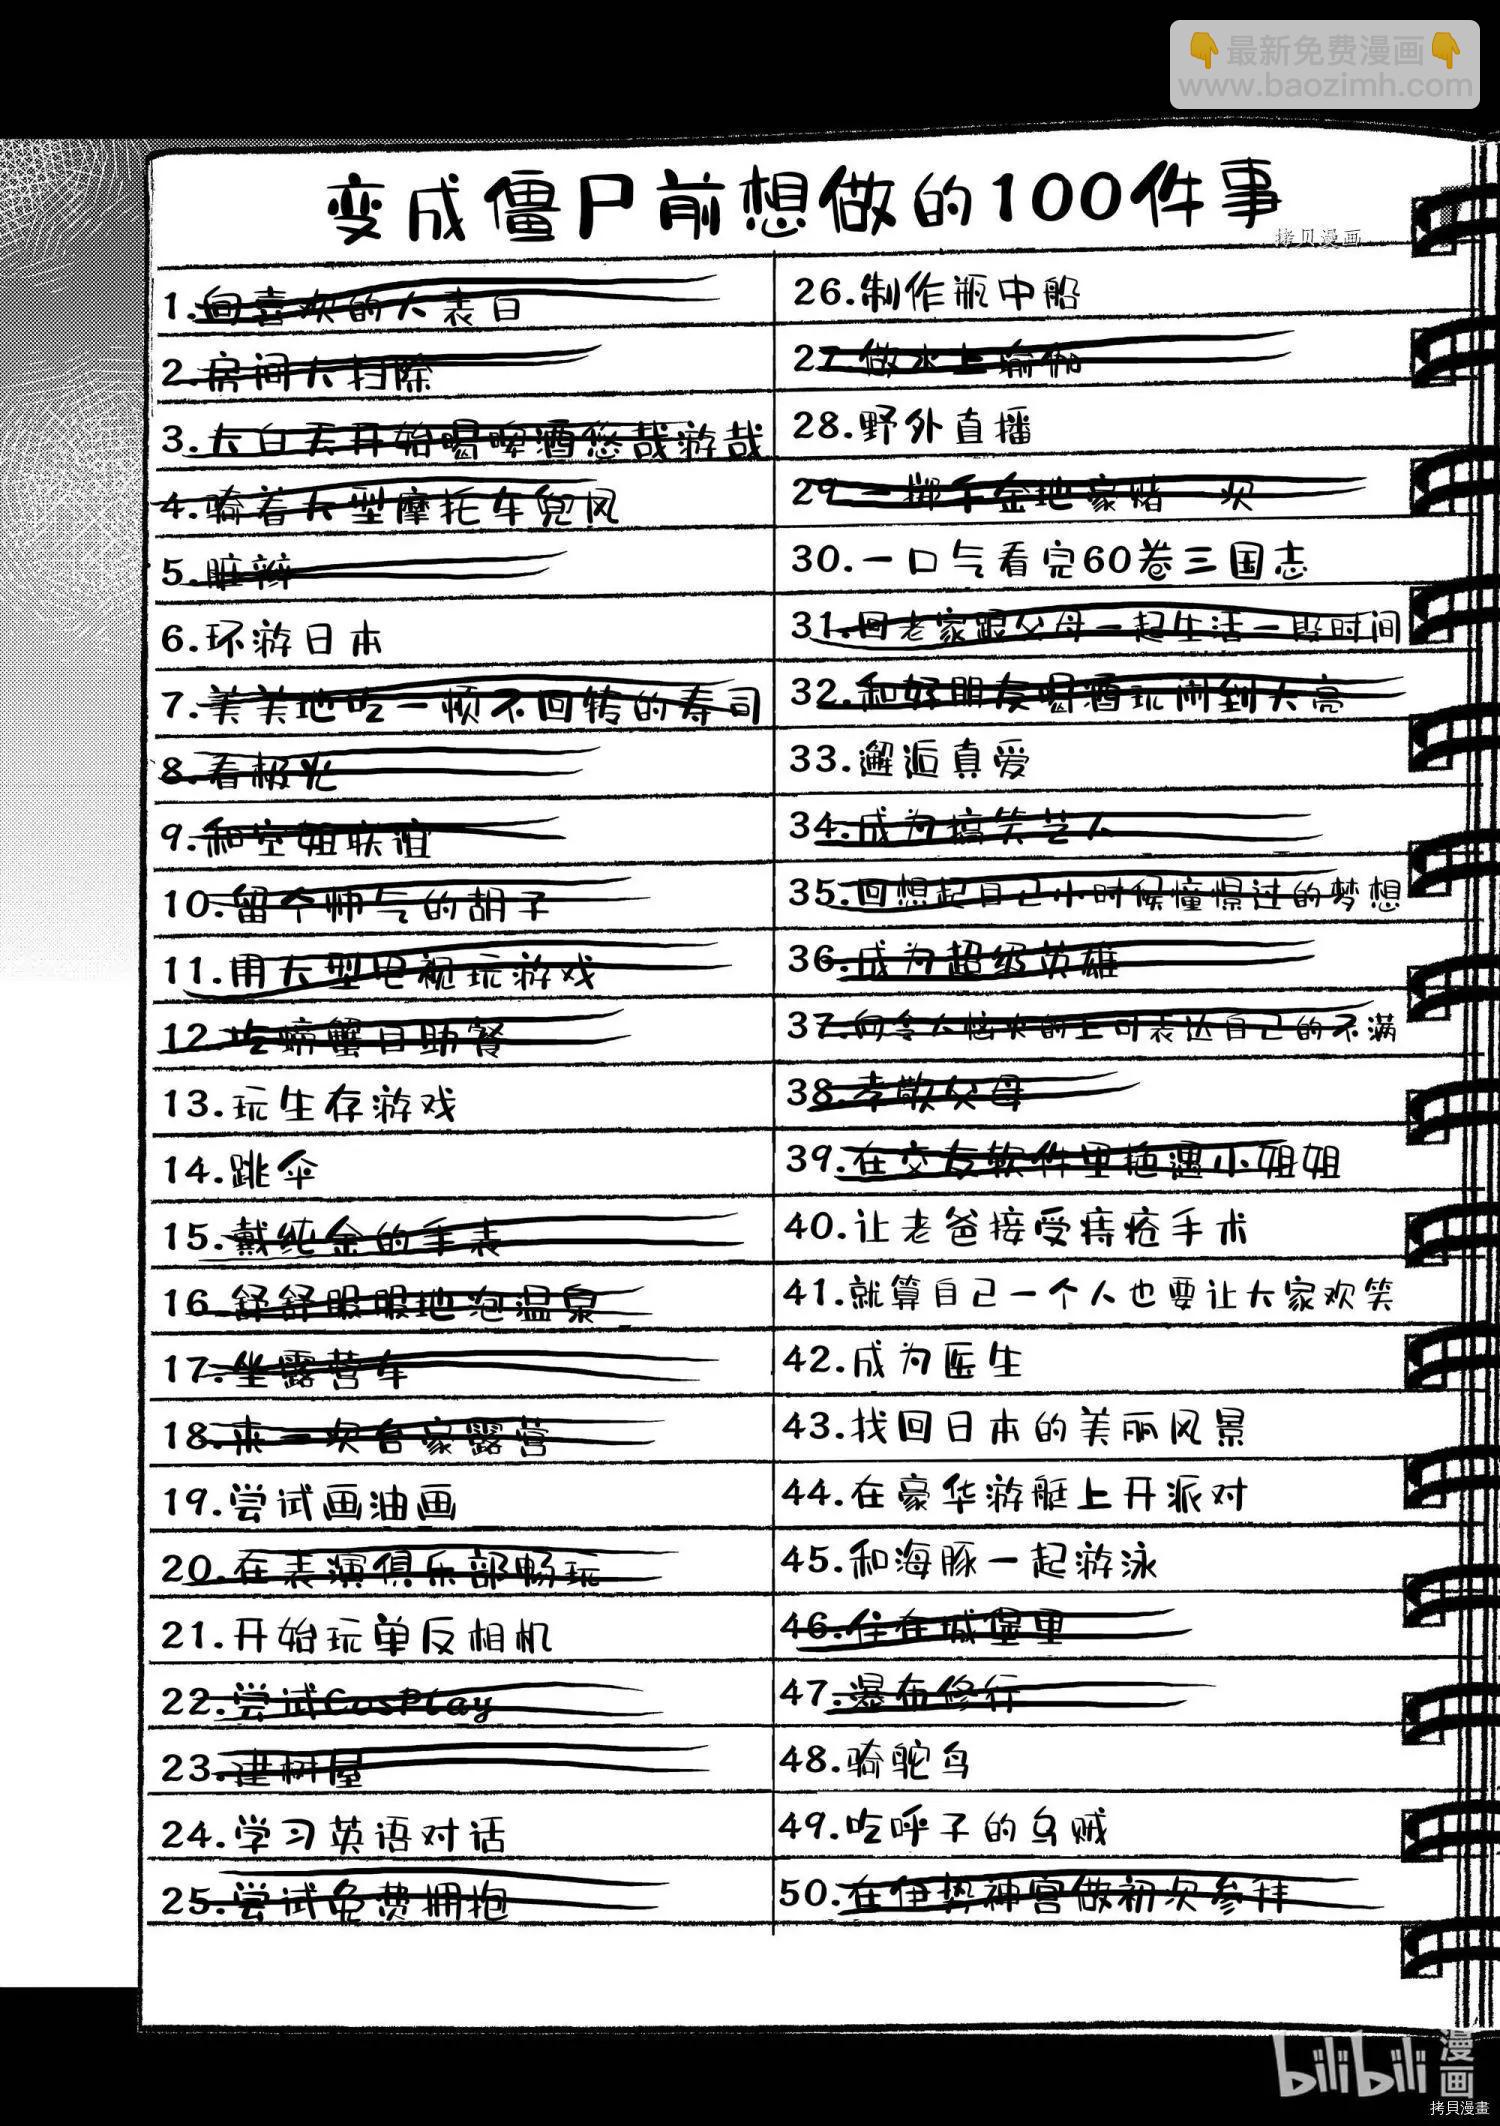 👇最新免费漫画👇
www.baozimh.com
变成僵尸前想做的100件事
拷贝漫画
1.向喜欢的人表白
2.房间大扫除
3.大白天开始喝啤酒悠哉游哉
4.骑着大型摩托车兜风
5.脏辫
6.环游日本
7.美美地吃一顿不回转的寿司
8.看极光
9.和空姐联谊
10.留个帅气的胡子
11.用大型电视玩游戏
12.吃螃蟹自助餐
13.玩生存游戏
14.跳伞
15.戴纯金的手表
16.舒舒服服地泡温泉
17.坐露营车
18.来一次合家露营
19.尝试画油画
20.在表演俱乐部畅玩
21.开始玩单反相机
22.尝试CosPlay
23.建树屋
24.学习英语对话
25.尝试免费拥抱
26.制作瓶中船
27.做水上瑜伽
28.野外直播
29.一掷千金地豪赌一次
30.一口气看完60卷三国志
31.回老家跟父母一起生活一段时间
32.和好朋友喝酒玩闹到天亮
33.邂逅真爱
34.成为搞笑艺人
35.回想起自己小时候憧憬过的梦想
36.成为超级英雄
37.向令人恼火的上司表达自己的不满
38.孝敬父母
39.在交友软件里艳遇小姐姐
40.让老爸接受痔疮手术
41.就算自己一个人也要让大家欢笑
42.成为医生
43.找回日本的美丽风景
44.在豪华游艇上开派对
45.和海豚一起游泳
46.住在城堡里
47.瀑布修行
48.骑鸵鸟
49.吃呼子的乌贼
50.在伊势神宫做初次参拜
bilibili漫画
拷貝漫畫